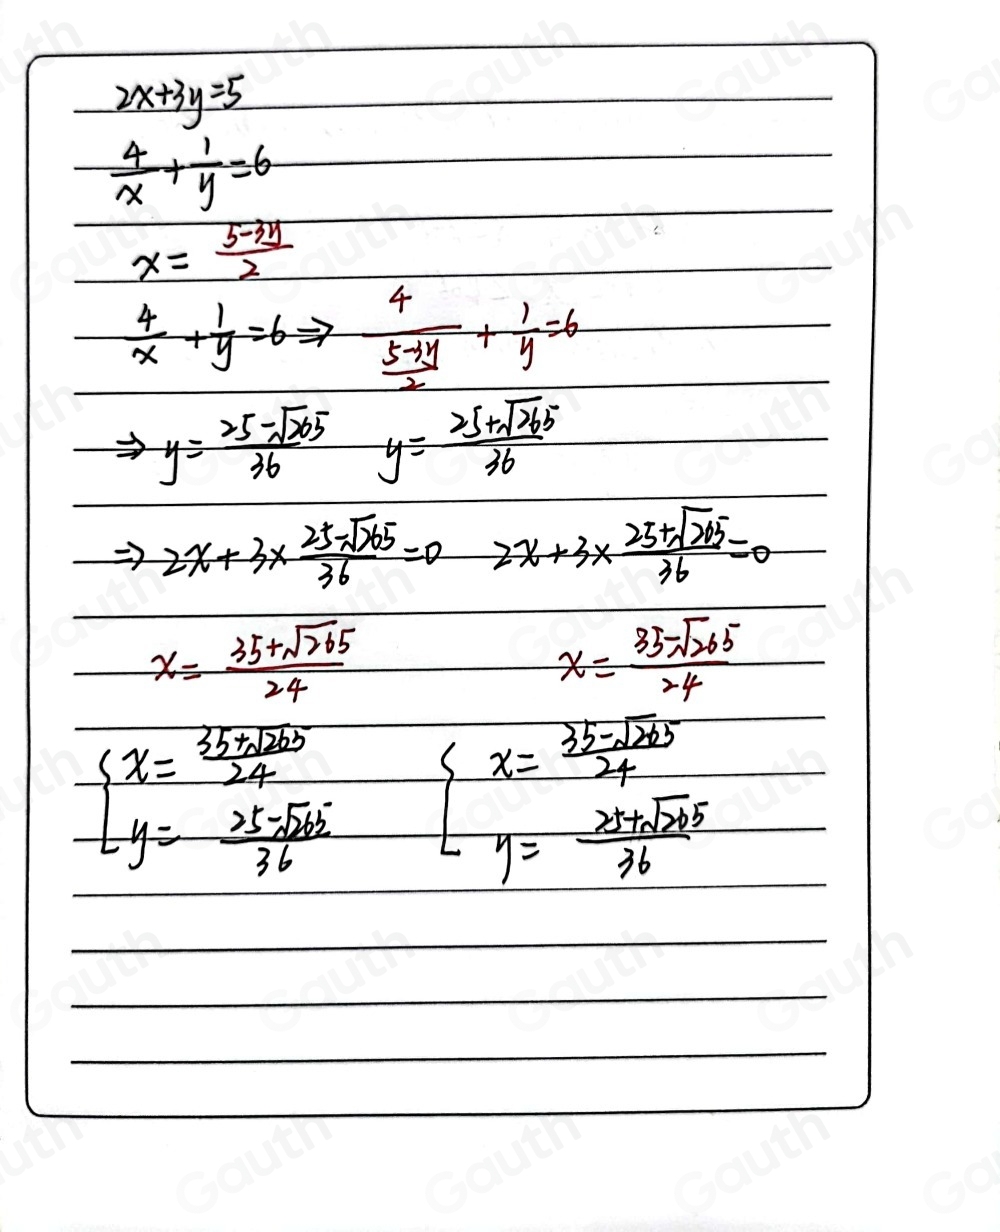 2x+3y=5
4/x + 1/y = 6
x = (5-3y)/2
4/x + 1/y = 6 ⇒ 4/((5-3y)/2) + 1/y = 6
⇒ y = (25-√265)/36 y = (25+√265)/36
⇒ 2x + 3 × (25-√265)/36 = 0 2x + 3 × (25+√265)/36 = 0
x = (35+√265)/24 x = (35-√265)/24
{ x = (35+√265)/24 { x = (35-√265)/24
y = (25-√265)/36 y = (25+√265)/36
Gauth